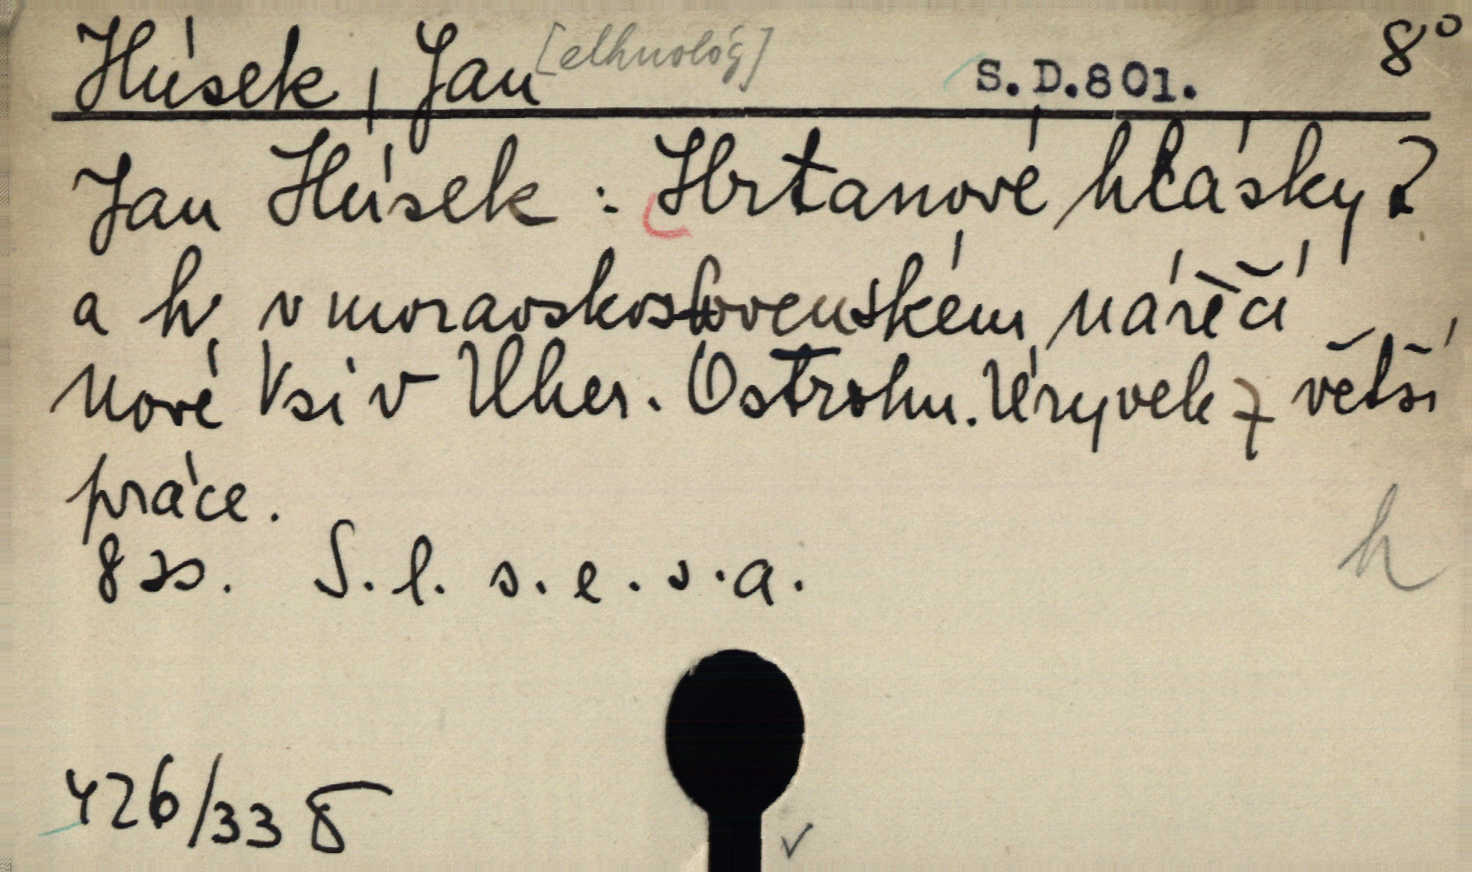 Húsek, Jan [ethnológ] S.D.801. 8°
Jan Húsek : Hrtanové hlásky ?
a h v moravskoslovenském nářečí
Nové Vsi v Uher. Ostrohu. Úryvek z větší
práce.
8 ss. S. l. s. e. s. a.
h
426/33